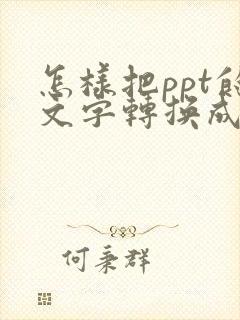 怎樣把ppt的
文字轉換成
何秉群